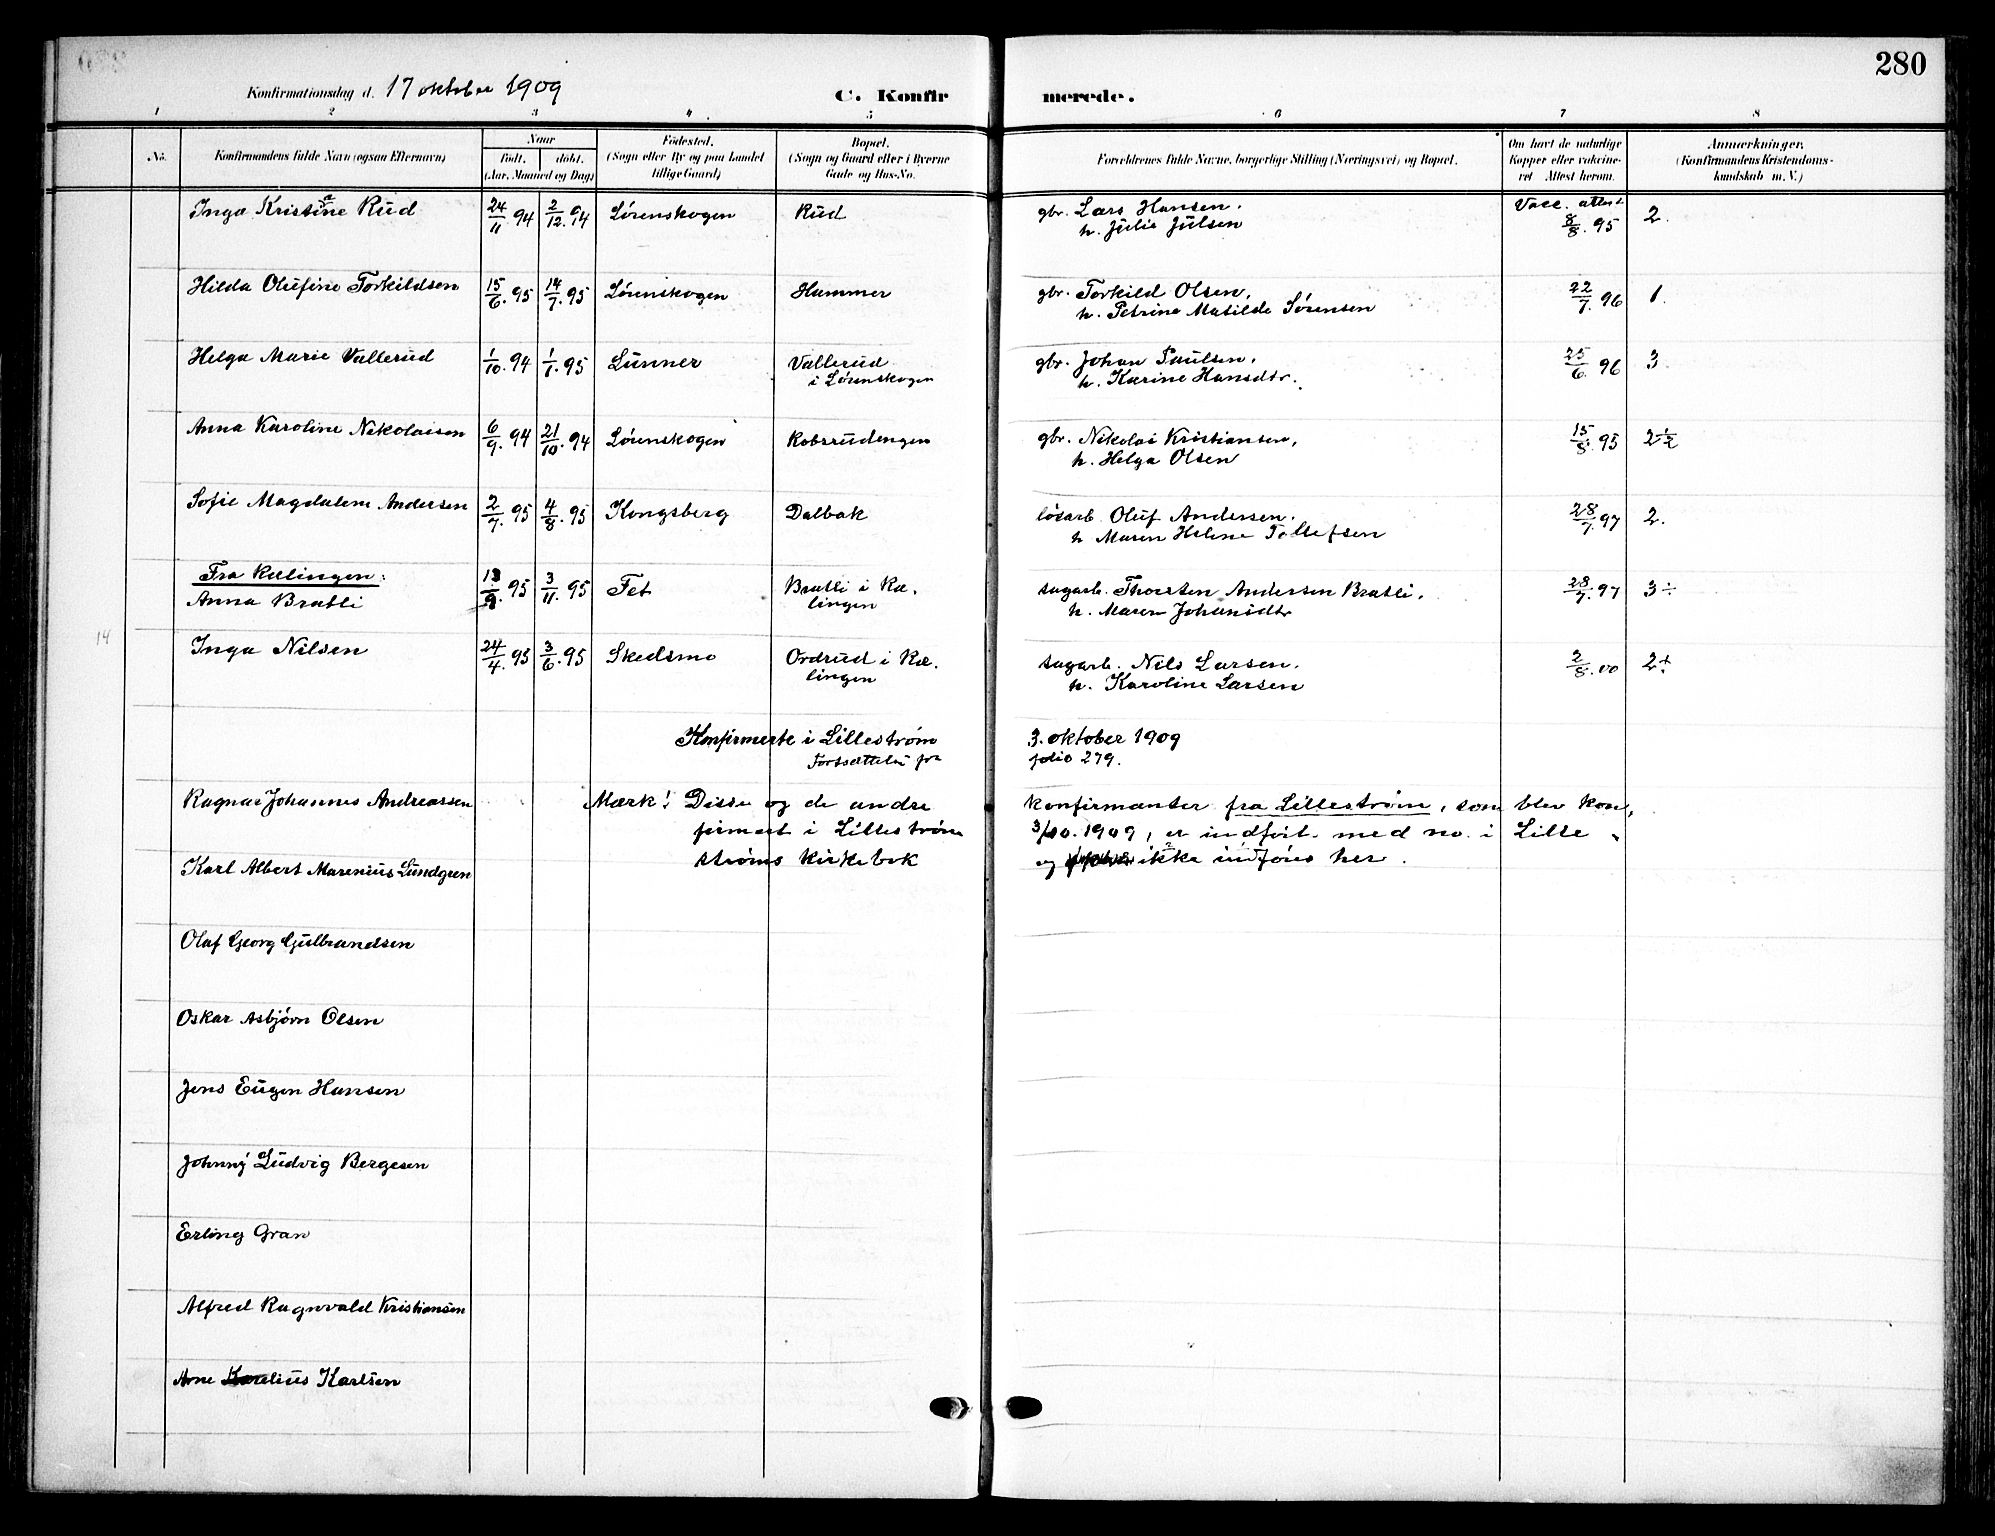 280
Konfirmationsdag d. 17 oktober 1909
C. Konfirmerede.
1 2 3 4 5 6 7 8
No.
Konfirmandens fulde Navn (ogsaa Efternavn)
Naar
født. døbt.
(Aar, Maaned og Dag)
Fødested.
(Sogn eller By og paa Landet
tillige Gaard)
Bopæl.
(Sogn og Gaard eller i Byerne
Gade og Hus-No.
Forældrenes fulde Navne, borgerlige Stilling (Næringsvei) og Bopæl.
Om havt de naturlige
Kopper eller vakcine-
ret Attest herom.
Anmærkninger.
(Konfirmandens Kristendoms-
kundskab m. V.)
Inga Kristine Rud 24/11 94 2/12. 94 Lørenskogen Rud gbr. Lars Hansen. Vacc. attest 8/8. 95 2.
h. Julie Julsen
Hilda Olufine Torkildsen 15/6. 95 14/7. 95 Lørenskogen Hammer gbr. Torkild Olsen, 22/7. 96 1.
h. Petrine Matilde Sørensen
Helga Marie Vallerud 1/10. 94 1/1. 95 Lunner Vallerud gbr. Johan Paulsen. 25/6 96 3.
i Lørenskogen h. Karine Hansdtr.
Anna Karoline Nikolaisen 6/9. 94 21/10. 94 Lørenskogen Robsrudengen gbr. Nikolai Kristiansen, 15/8. 95 2 1/2
h. Helga Olsen
Sofie Magdalene Andersen 2/7. 95 4/8. 95 Kongsberg Dalbak løsarb. Oluf Andersen. 28/7. 97 2.
h Maren Helene Tollefsen
Fra Rælingen:
Anna Bratli 13/9. 95 3/11. 95 Fet Bratli i Ræ- sagarb. Thorsten Andersen Bratli, 28/7. 97 3÷
lingen h. Maren Johansdtr
14
Inga Nilsen 24/4. 95 3/6. 95 Skedsmo Ordrud i Ræ- sagarb. Nils Larsen. 2/8. 00 2
lingen h. Karoline Larsen
Konfirmerte i Lillestrøm 3. oktober 1909
Fortsættelse fra folio 279.
Ragnar Johannes Andreassen Mærk! Disse og de andre konfirmanter fra Lillestrøm, som blev kon-
firmert i Lillestrøm 3/10. 1909, er indført med no. i Lille-
strøms kirkebok og ikke indføres her.
Karl Albert Marenius Lundgren
Olaf Georg Gulbrandsen
Oskar Asbjørn Olsen
Jens Eugen Hansen
Johnny Ludvig Bergesen
Erling Gran
Alfred Ragnvald Kristiansen
Arne Karlsen